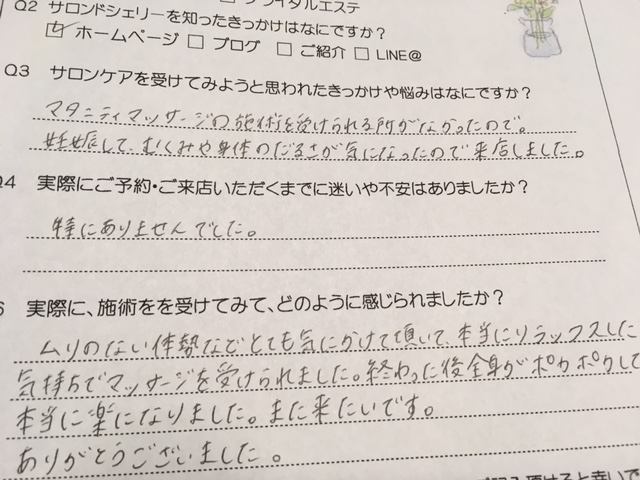 ブライダルエステ
Q2 サロンドシェリーを知ったきっかけはなにですか？
ホームページ □ ブログ □ ご紹介 □ LINE@
Q3 サロンケアを受けてみようと思われたきっかけや悩みはなにですか？
マタニティマッサージの施術を受けられる所がなかったので。
妊娠して、むくみや身体のだるさが気になったので来店しました。
Q4 実際にご予約・ご来店いただくまでに迷いや不安はありましたか？
特にありませんでした。
実際に、施術をを受けてみて、どのように感じられましたか？
ムリのない体勢などとても気にかけて頂いて、本当にリラックスした
気持ちでマッサージを受けられました。終わった後全身がポカポカして
本当に楽になりました。また来たいです。
ありがとうございました。